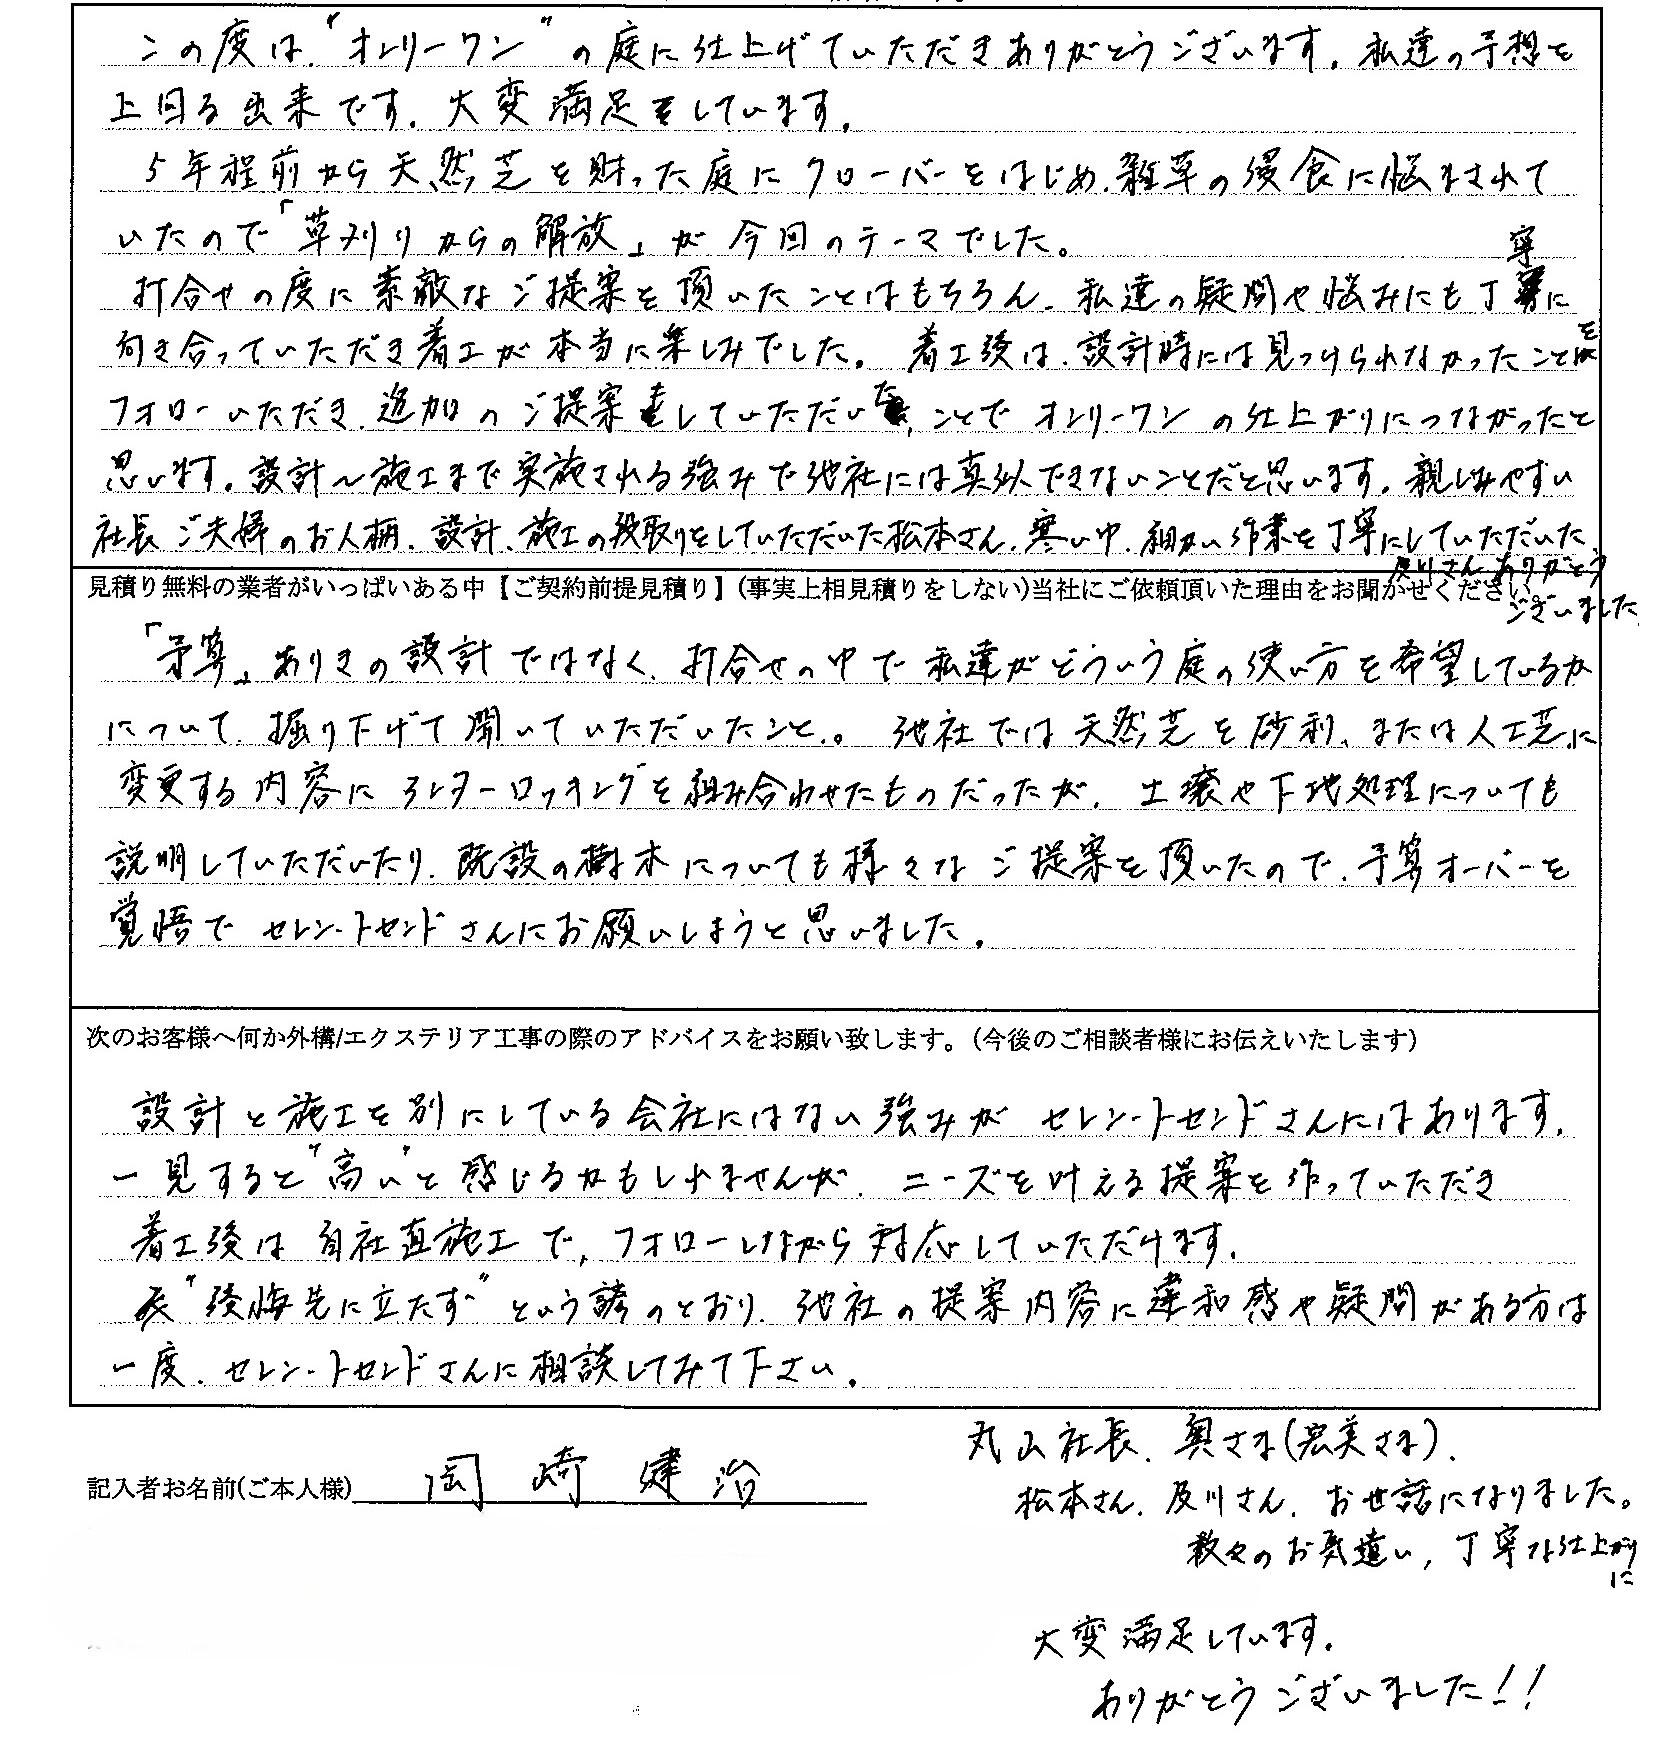 この度は"オンリーワン"の庭に仕上げていただきありがとうございます。私達の予想を
上回る出来です。大変満足をしています。
5年程前から天然芝を貼った庭にクローバーをはじめ、雑草の侵食に悩まされて
いたので「草刈りからの解放」が今回のテーマでした。
打合せの度に素敵なご提案を頂いたことはもちろん、私達の疑問や悩みにも丁寧に
向き合っていただき着工が本当に楽しみでした。着工後は、設計時には見つけられなかったことを
フォローいただき、追加のご提案をしていただいた、ことでオンリーワンの仕上がりにつながったと
思います。設計～施工まで実施される強みで他社には真似できないことだと思います。親しみやすい
社長ご夫婦のお人柄、設計、施工の段取りをしていただいた松本さん、寒い中、細かい作業を丁寧にしていただいた
及川さんありがとう
ございました
見積り無料の業者がいっぱいある中【ご契約前提見積り】(事実上相見積りをしない)当社にご依頼頂いた理由をお聞かせください。
「予算」ありきの設計ではなく、打合せの中で私達がどういう庭の使い方を希望しているか
について、掘り下げて聞いていただいたこと。。他社では天然芝を砂利、または人工芝に
変更する内容にインターロッキングを組み合わせたものだったが、土壌や下地処理についても
説明していただいたり、既設の樹木についても様々なご提案を頂いたので、予算オーバーを
覚悟でセレン・トセンドさんにお願いしようと思いました。
次のお客様へ何か外構/エクステリア工事の際のアドバイスをお願い致します。(今後のご相談者様にお伝えいたします)
設計と施工を別にしている会社にはない強みがセレン・トセンドさんにはあります。
一見すると"高い"と感じるかもしれませんが、ニーズを叶える提案を作っていただき
着工後は自社直施工で、フォローしながら対応していただけます。
"後悔先に立たず"という諺のとおり、他社の提案内容に違和感や疑問がある方は
一度、セレン・トセンドさんに相談してみて下さい。
記入者お名前(ご本人様) 岡崎健治
丸山社長、奥さま(宏美さま)、
松本さん、及川さん、お世話になりました。
数々のお気遣い、丁寧な仕上がり
に
大変満足しています。
ありがとうございました!!